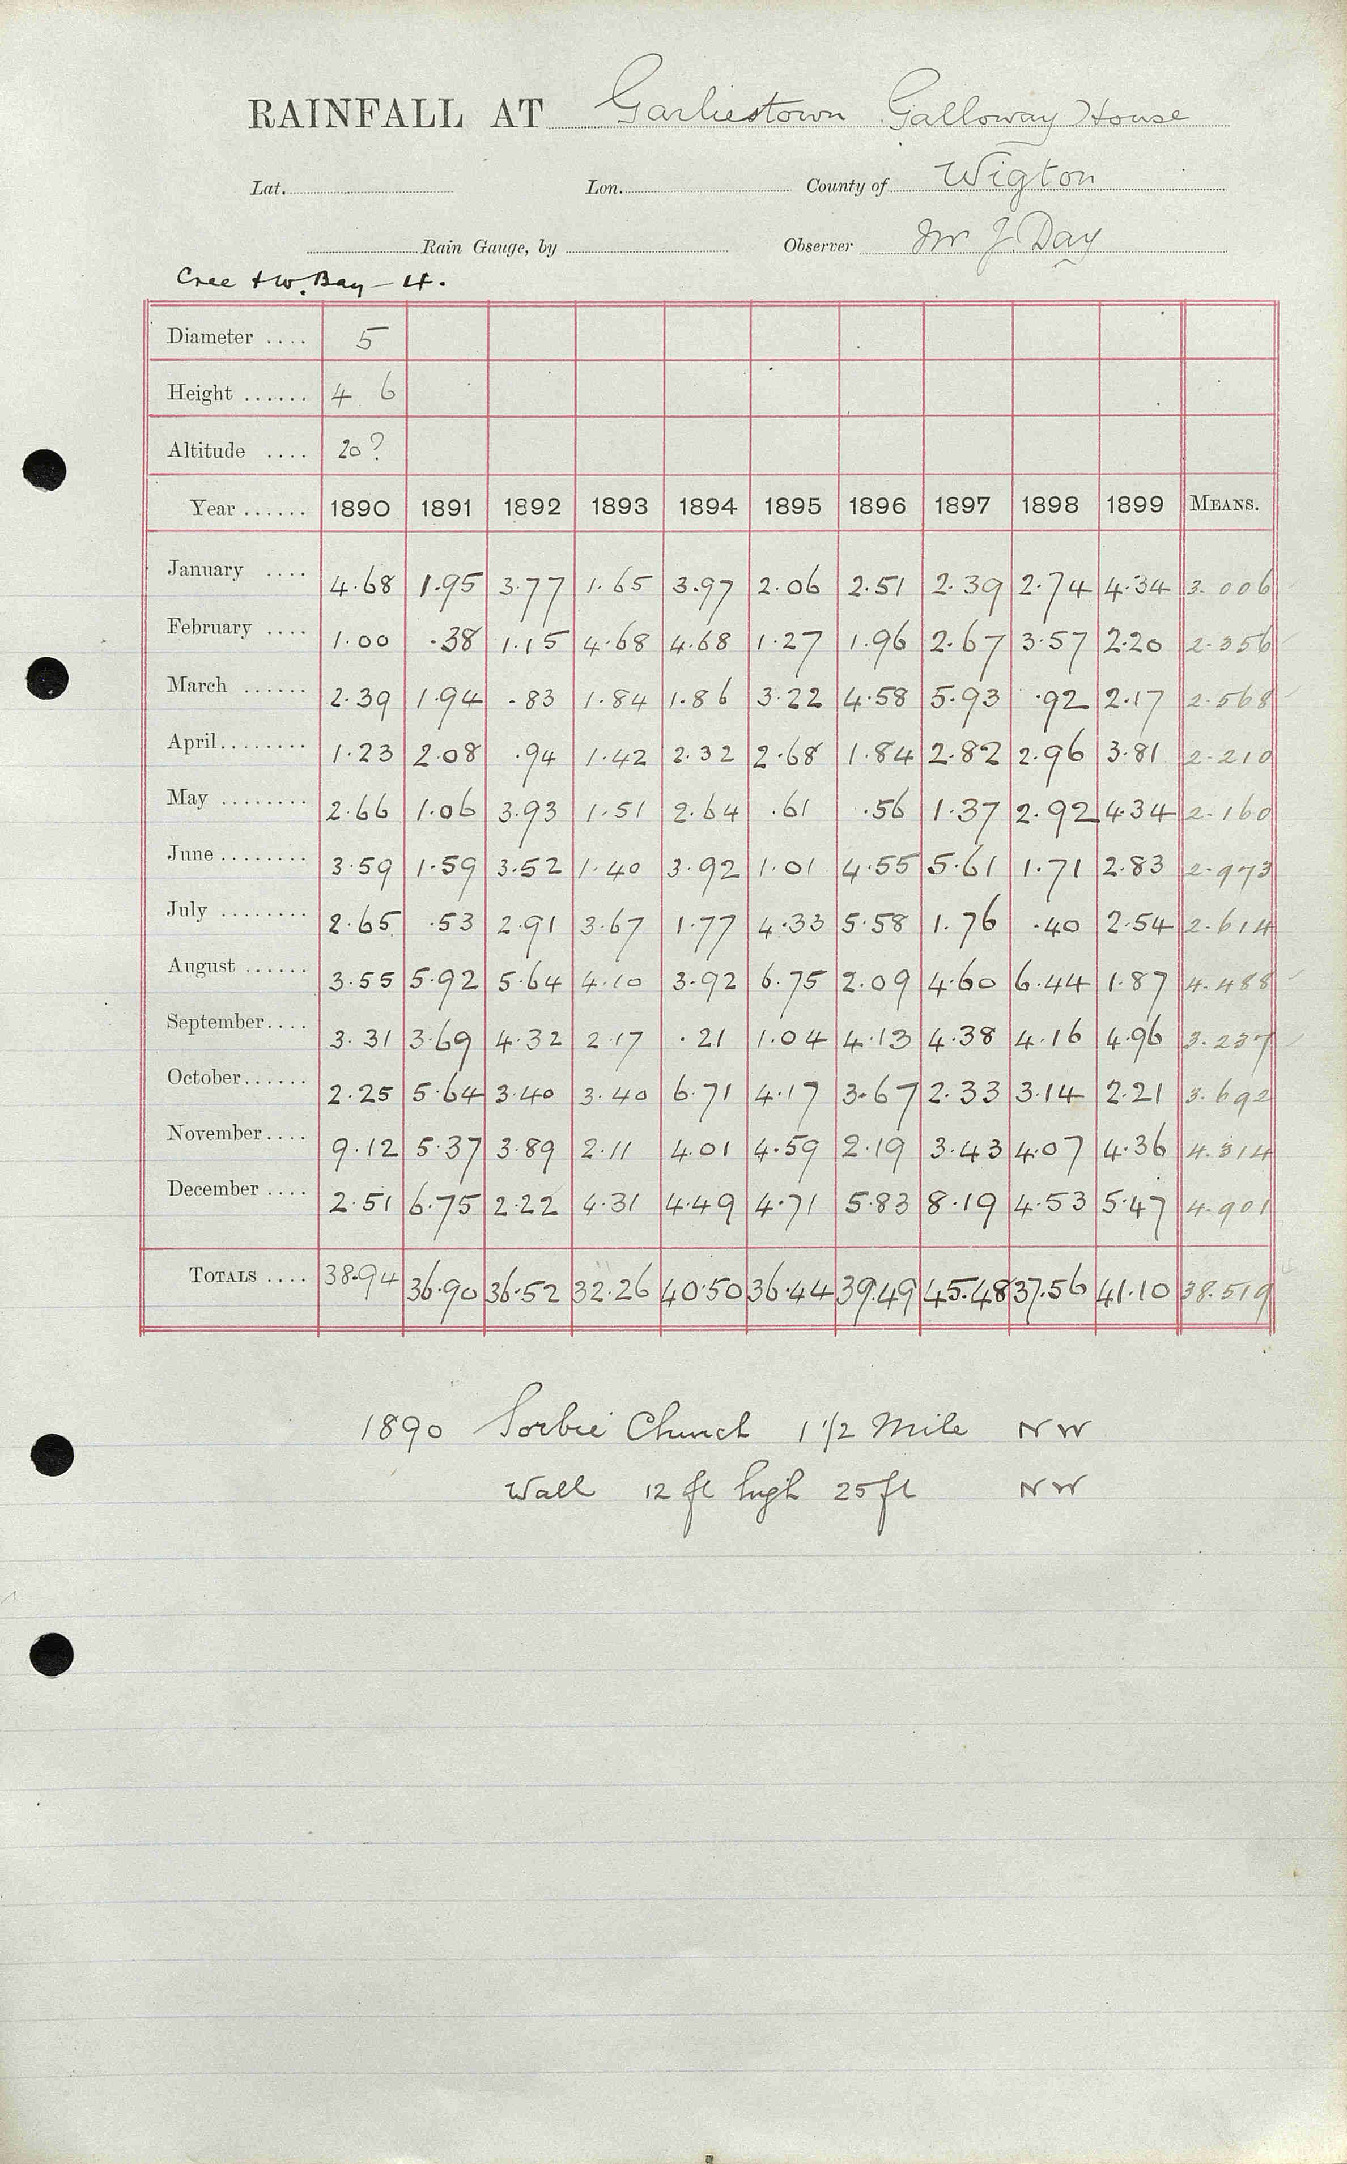 RAINFALL AT Garliestown Galloway House
Lat. Lon. County of Wigton
Rain Gauge, by Observer Mr J Day
Cree & W. Bay - 4.
Diameter .... 5
Height ...... 4 6
Altitude .... 20?
Year ...... 1890 1891 1892 1893 1894 1895 1896 1897 1898 1899 MEANS.
January .... 4.68 1.95 3.77 1.65 3.97 2.06 2.51 2.39 2.74 4.34 3.006
February .... 1.00 .38 1.15 4.68 4.68 1.27 1.96 2.67 3.57 2.20 2.356
March ...... 2.39 1.94 .83 1.84 1.86 3.22 4.58 5.93 .92 2.17 2.568
April........ 1.23 2.08 .94 1.42 2.32 2.68 1.84 2.82 2.96 3.81 2.210
May ........ 2.66 1.06 3.93 1.51 2.64 .61 .56 1.37 2.92 4.34 2.160
June ........ 3.59 1.59 3.52 1.40 3.92 1.01 4.55 5.61 1.71 2.83 2.973
July ........ 2.65 .53 2.91 3.67 1.77 4.33 5.58 1.76 .40 2.54 2.614
August ...... 3.55 5.92 5.64 4.10 3.92 6.75 2.09 4.60 6.44 1.87 4.488
September.... 3.31 3.69 4.32 2.17 .21 1.04 4.13 4.38 4.16 4.96 3.237
October...... 2.25 5.64 3.40 3.40 6.71 4.17 3.67 2.33 3.14 2.21 3.692
November.... 9.12 5.37 3.89 2.11 4.01 4.59 2.19 3.43 4.07 4.36 4.314
December .... 2.51 6.75 2.22 4.31 4.49 4.71 5.83 8.19 4.53 5.47 4.901
TOTALS .... 38.94 36.90 36.52 32.26 40.50 36.44 39.49 45.48 37.56 41.10 38.519
1890 Sorbie Church 1 1/2 Mile NW
Wall 12 ft high 25 ft NW